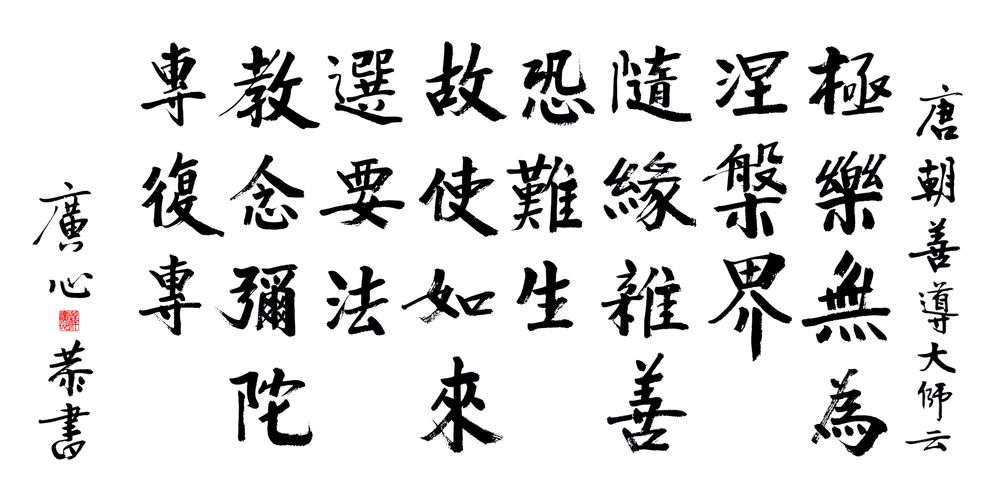 唐朝善導大師云
極樂無為
涅槃界
隨緣雜善
恐難生
故使如來
選要法
教念彌陀
專復專
廣心
恭書